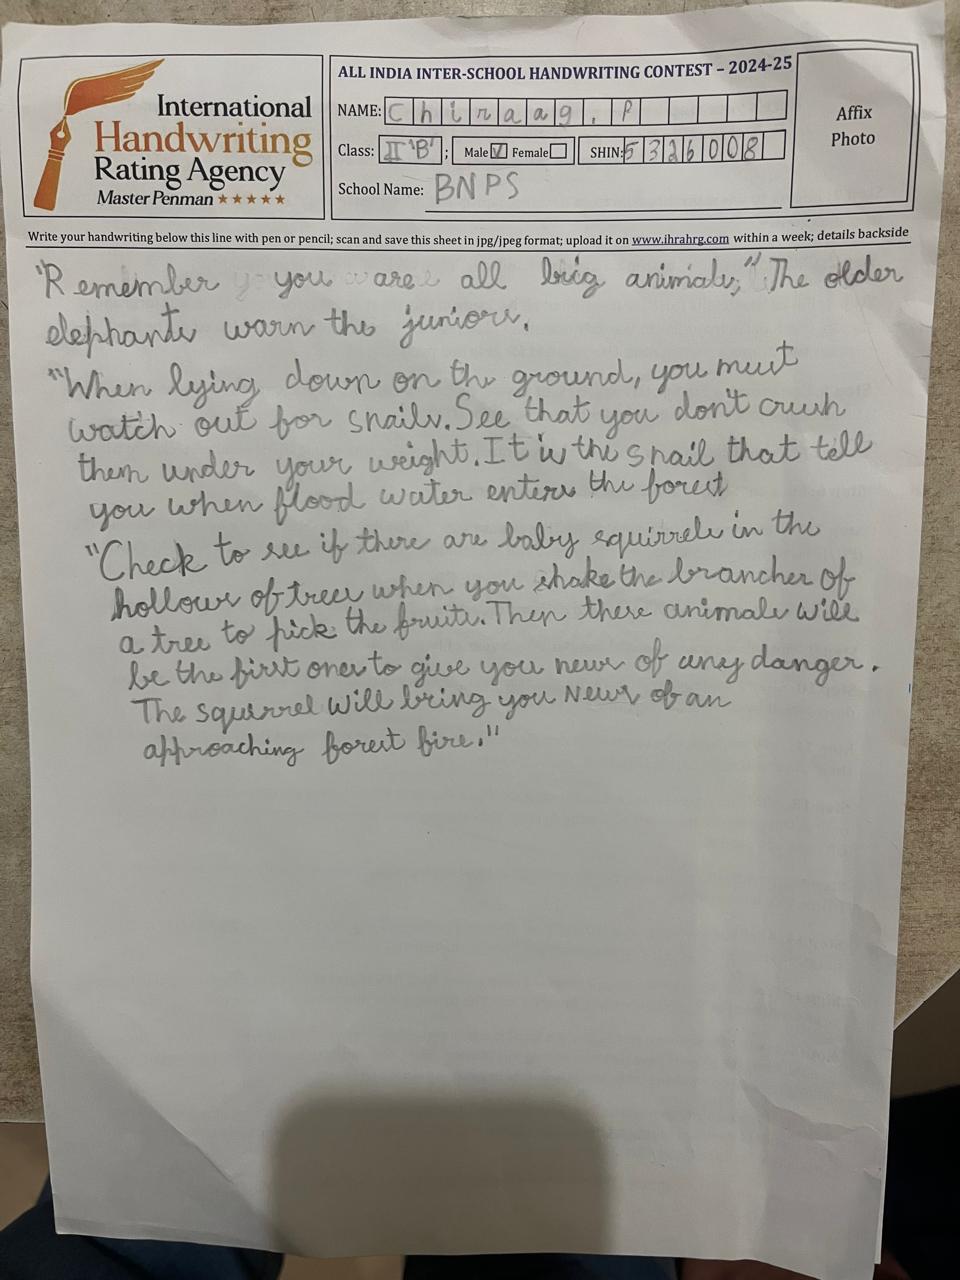 International
Handwriting
Rating Agency
Master Penman ★★★★★
ALL INDIA INTER-SCHOOL HANDWRITING CONTEST – 2024-25
NAME: Chiraag. P
Class: II 'B' ; Male ☑ Female ☐ SHIN: 5326008
School Name: BNPS
Affix
Photo
Write your handwriting below this line with pen or pencil; scan and save this sheet in jpg/jpeg format; upload it on www.ihrahrg.com within a week; details backside
"Remember you are all big animals," The older
elephants warn the juniors.
"When lying down on the ground, you must
watch out for snails. See that you don't crush
them under your weight. It is the snail that tell
you when flood water enters the forest
"Check to see if there are baby squirrels in the
hollows of trees when you shake the branches of
a tree to pick the fruits. Then these animals will
be the first ones to give you news of any danger.
The squirrel will bring you News of an
approaching forest fire."